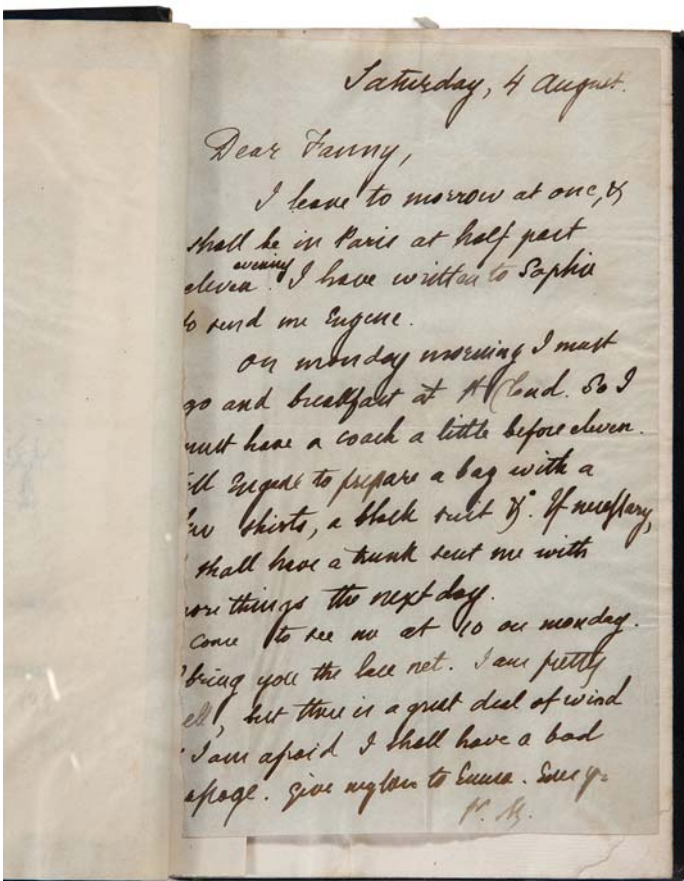 Saturday, 4 August.
Dear Fanny,
I leave to morrow at one, &
shall be in Paris at half past
evening
eleven. I have written to Sophie
to send me Eugene.
On monday morning I must
go and breakfast at St Cloud. So I
must have a coach a little before eleven.
ell Eugene to prepare a bag with a
few shirts, a black suit &c. If necessary,
shall have a trunk sent me with
ore things the next day.
Come to see me at 10 on monday.
bring you the lace net. I am pretty
ell, but there is a great deal of wind
I am afraid I shall have a bad
assage. Give my love to Emma.
P. M.